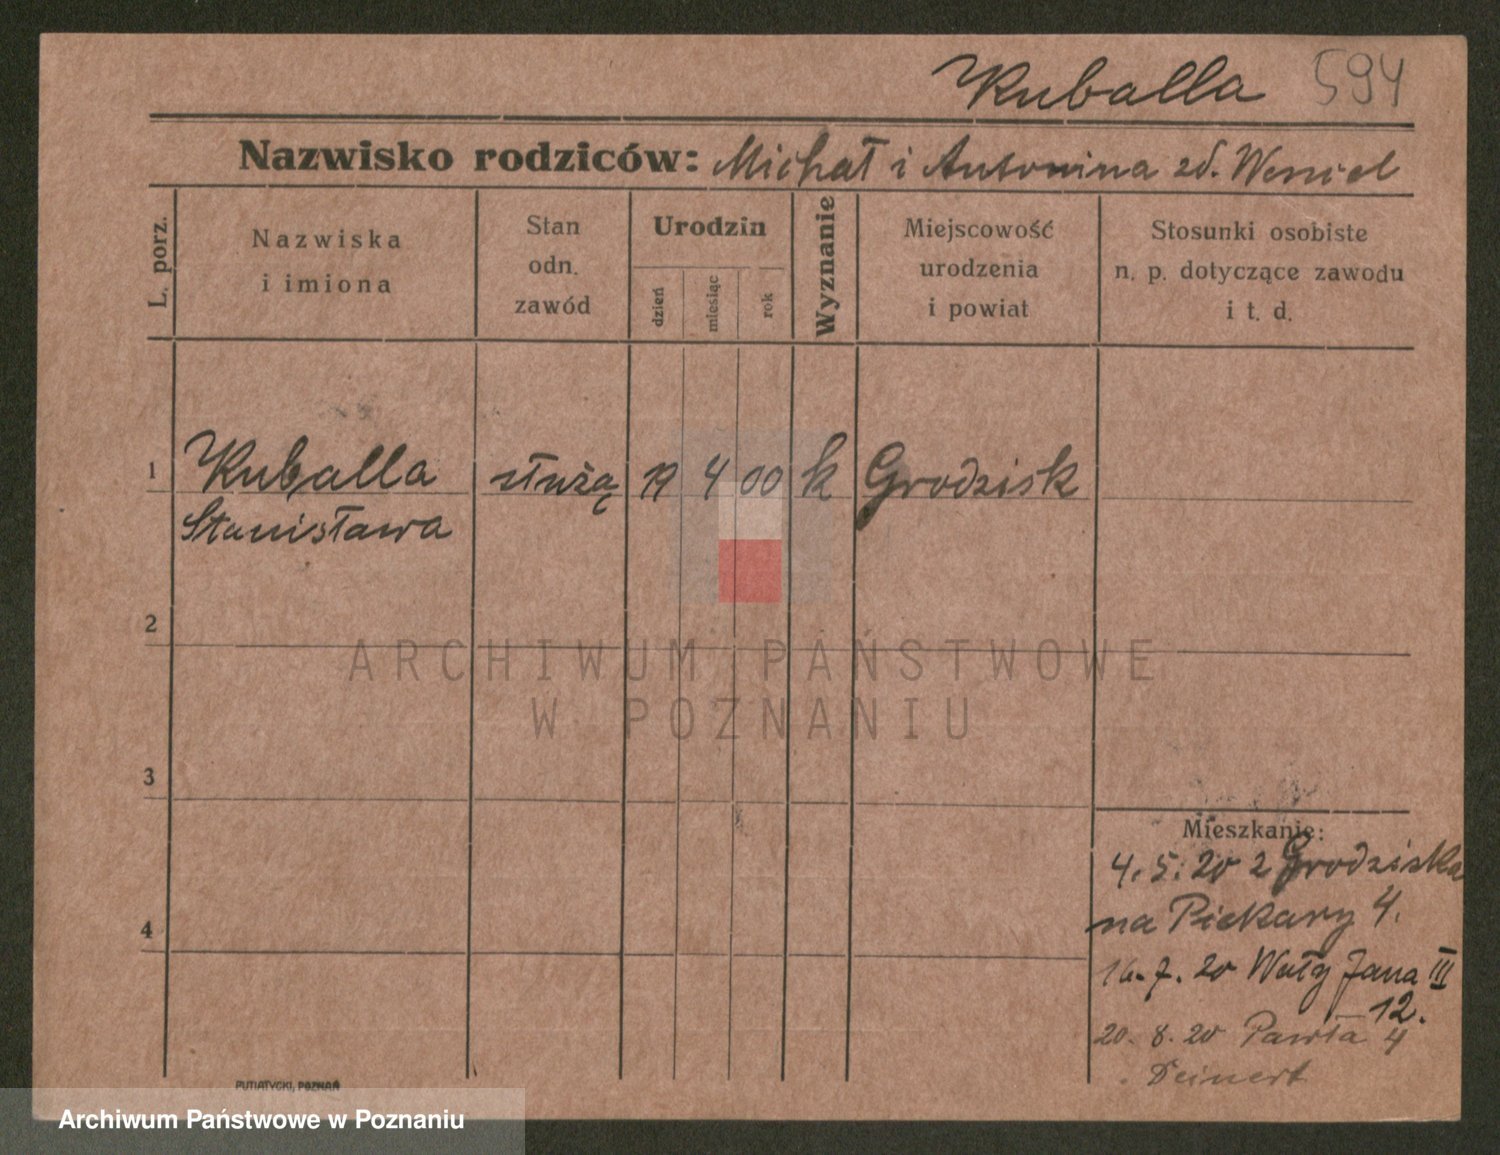 Kuballa 594
Nazwisko rodziców: Michał i Antonina zd.
L. porz.
Nazwiska
i imiona
Stan
odn.
zawód
Urodzin
dzień
miesiąc
rok
Wyznanie
Miejscowość
urodzenia
i powiat
Stosunki osobiste
n. p. dotyczące zawodu
i t. d.
1 Kuballa służą 19 4 00 k Grodzisk
Stanisława
2
ARCHIWUM PAŃSTWOWE
W POZNANIU
3
Mieszkanie:
4. 5. 20 z Grodziska
na Piekary 4.
4
16. 7. 20 Wały Jana III
12.
20. 8. 20 Pawła 4
Deinert
PUTIATYCKI, POZNAŃ
Archiwum Państwowe w Poznaniu